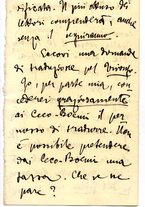 dificata. Il più ottuso di
lettori comprenderà, anche
senza il
Eccovi una domanda
di traduzione pel Trionfo.
Io, per parte mia, con-
cederei graziosamente
ai Ceco-Boemi il per-
messo di tradurre. Non
è possibile pretendere
dai Ceco-Boemi una
tassa. Che ve ne
pare?